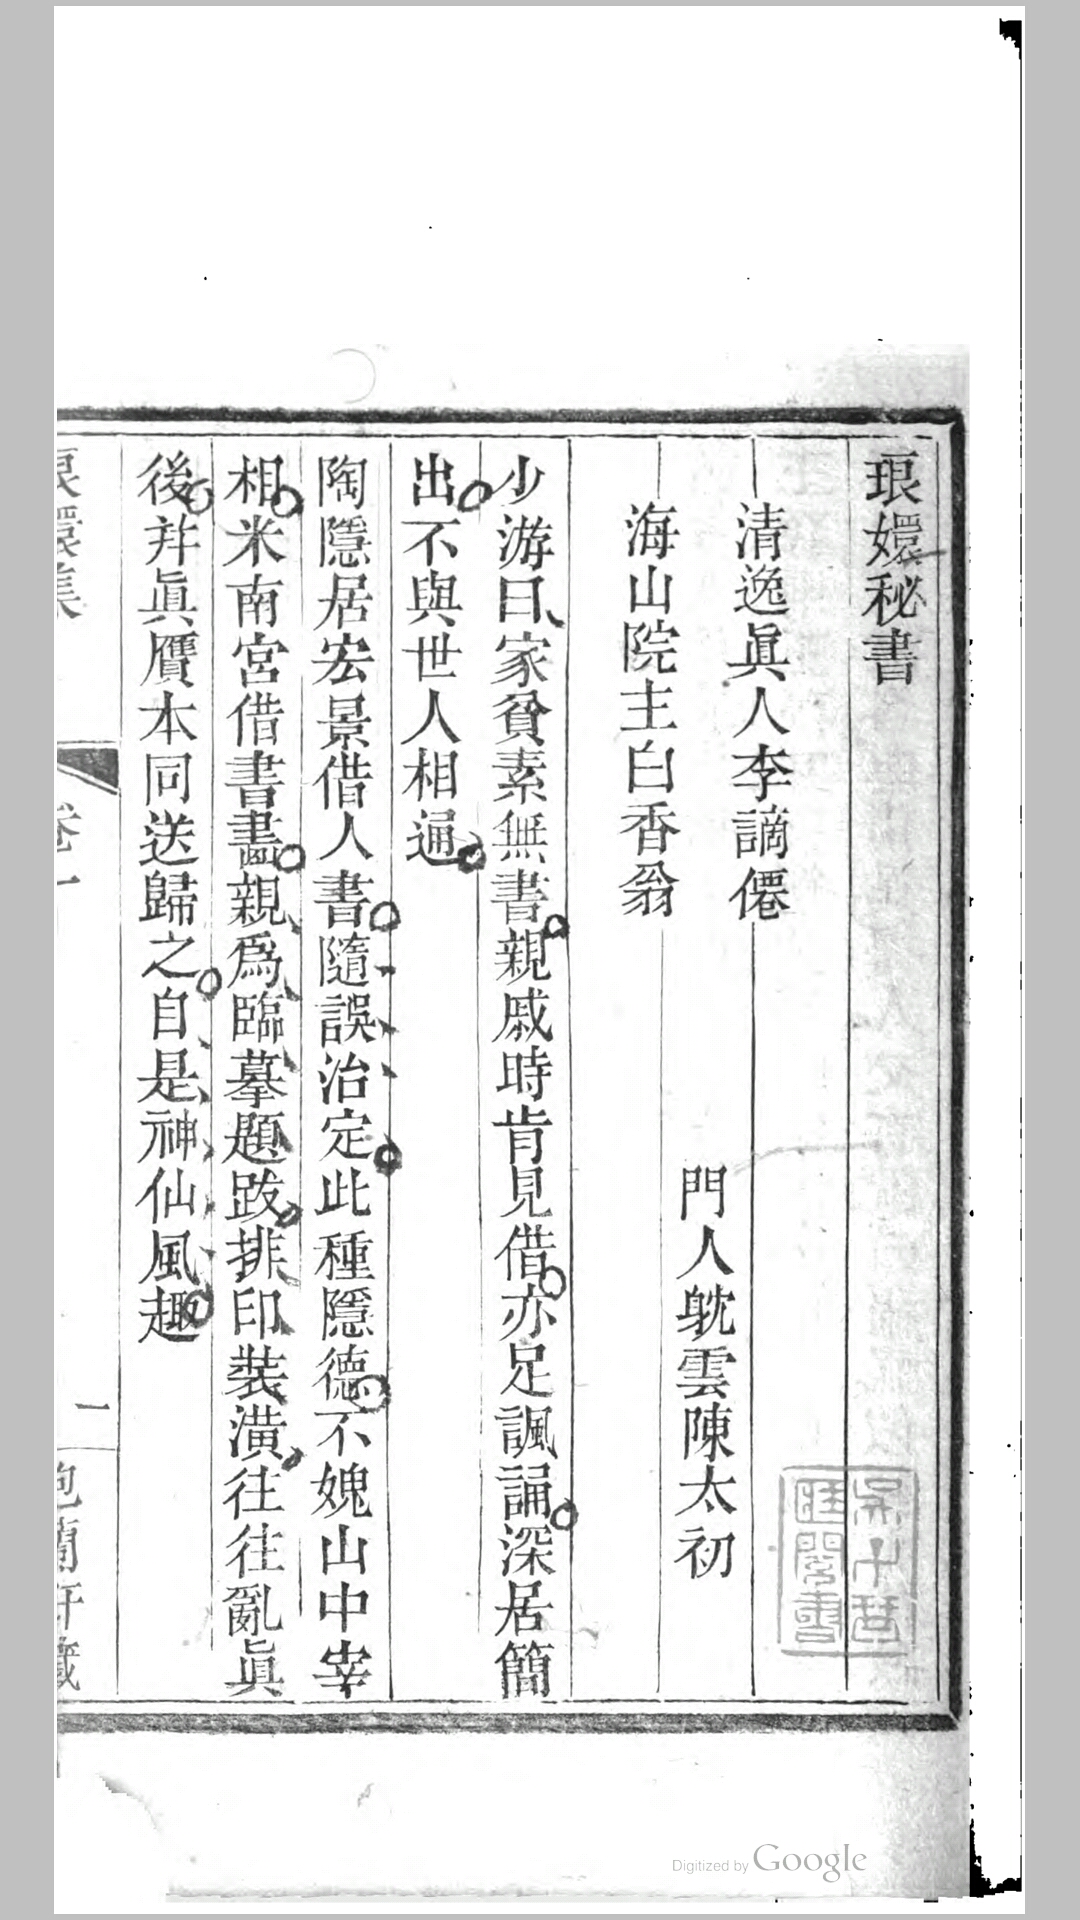 琅嬛秘書
清逸眞人李謫僊
海山院主白香翁
門人躭雲陳太初
少游曰家貧素無書親戚時肯見借亦足諷誦深居簡
出不與世人相通
陶隱居宏景借人書隨誤治定此種隱德不媿山中宰
相米南宮借書畫親爲臨摹題跋排印裝潢往往亂眞
後并眞贋本同送歸之自是神仙風趣
琅嬛集
卷一
一
抱蘭軒藏
Digitized by Google